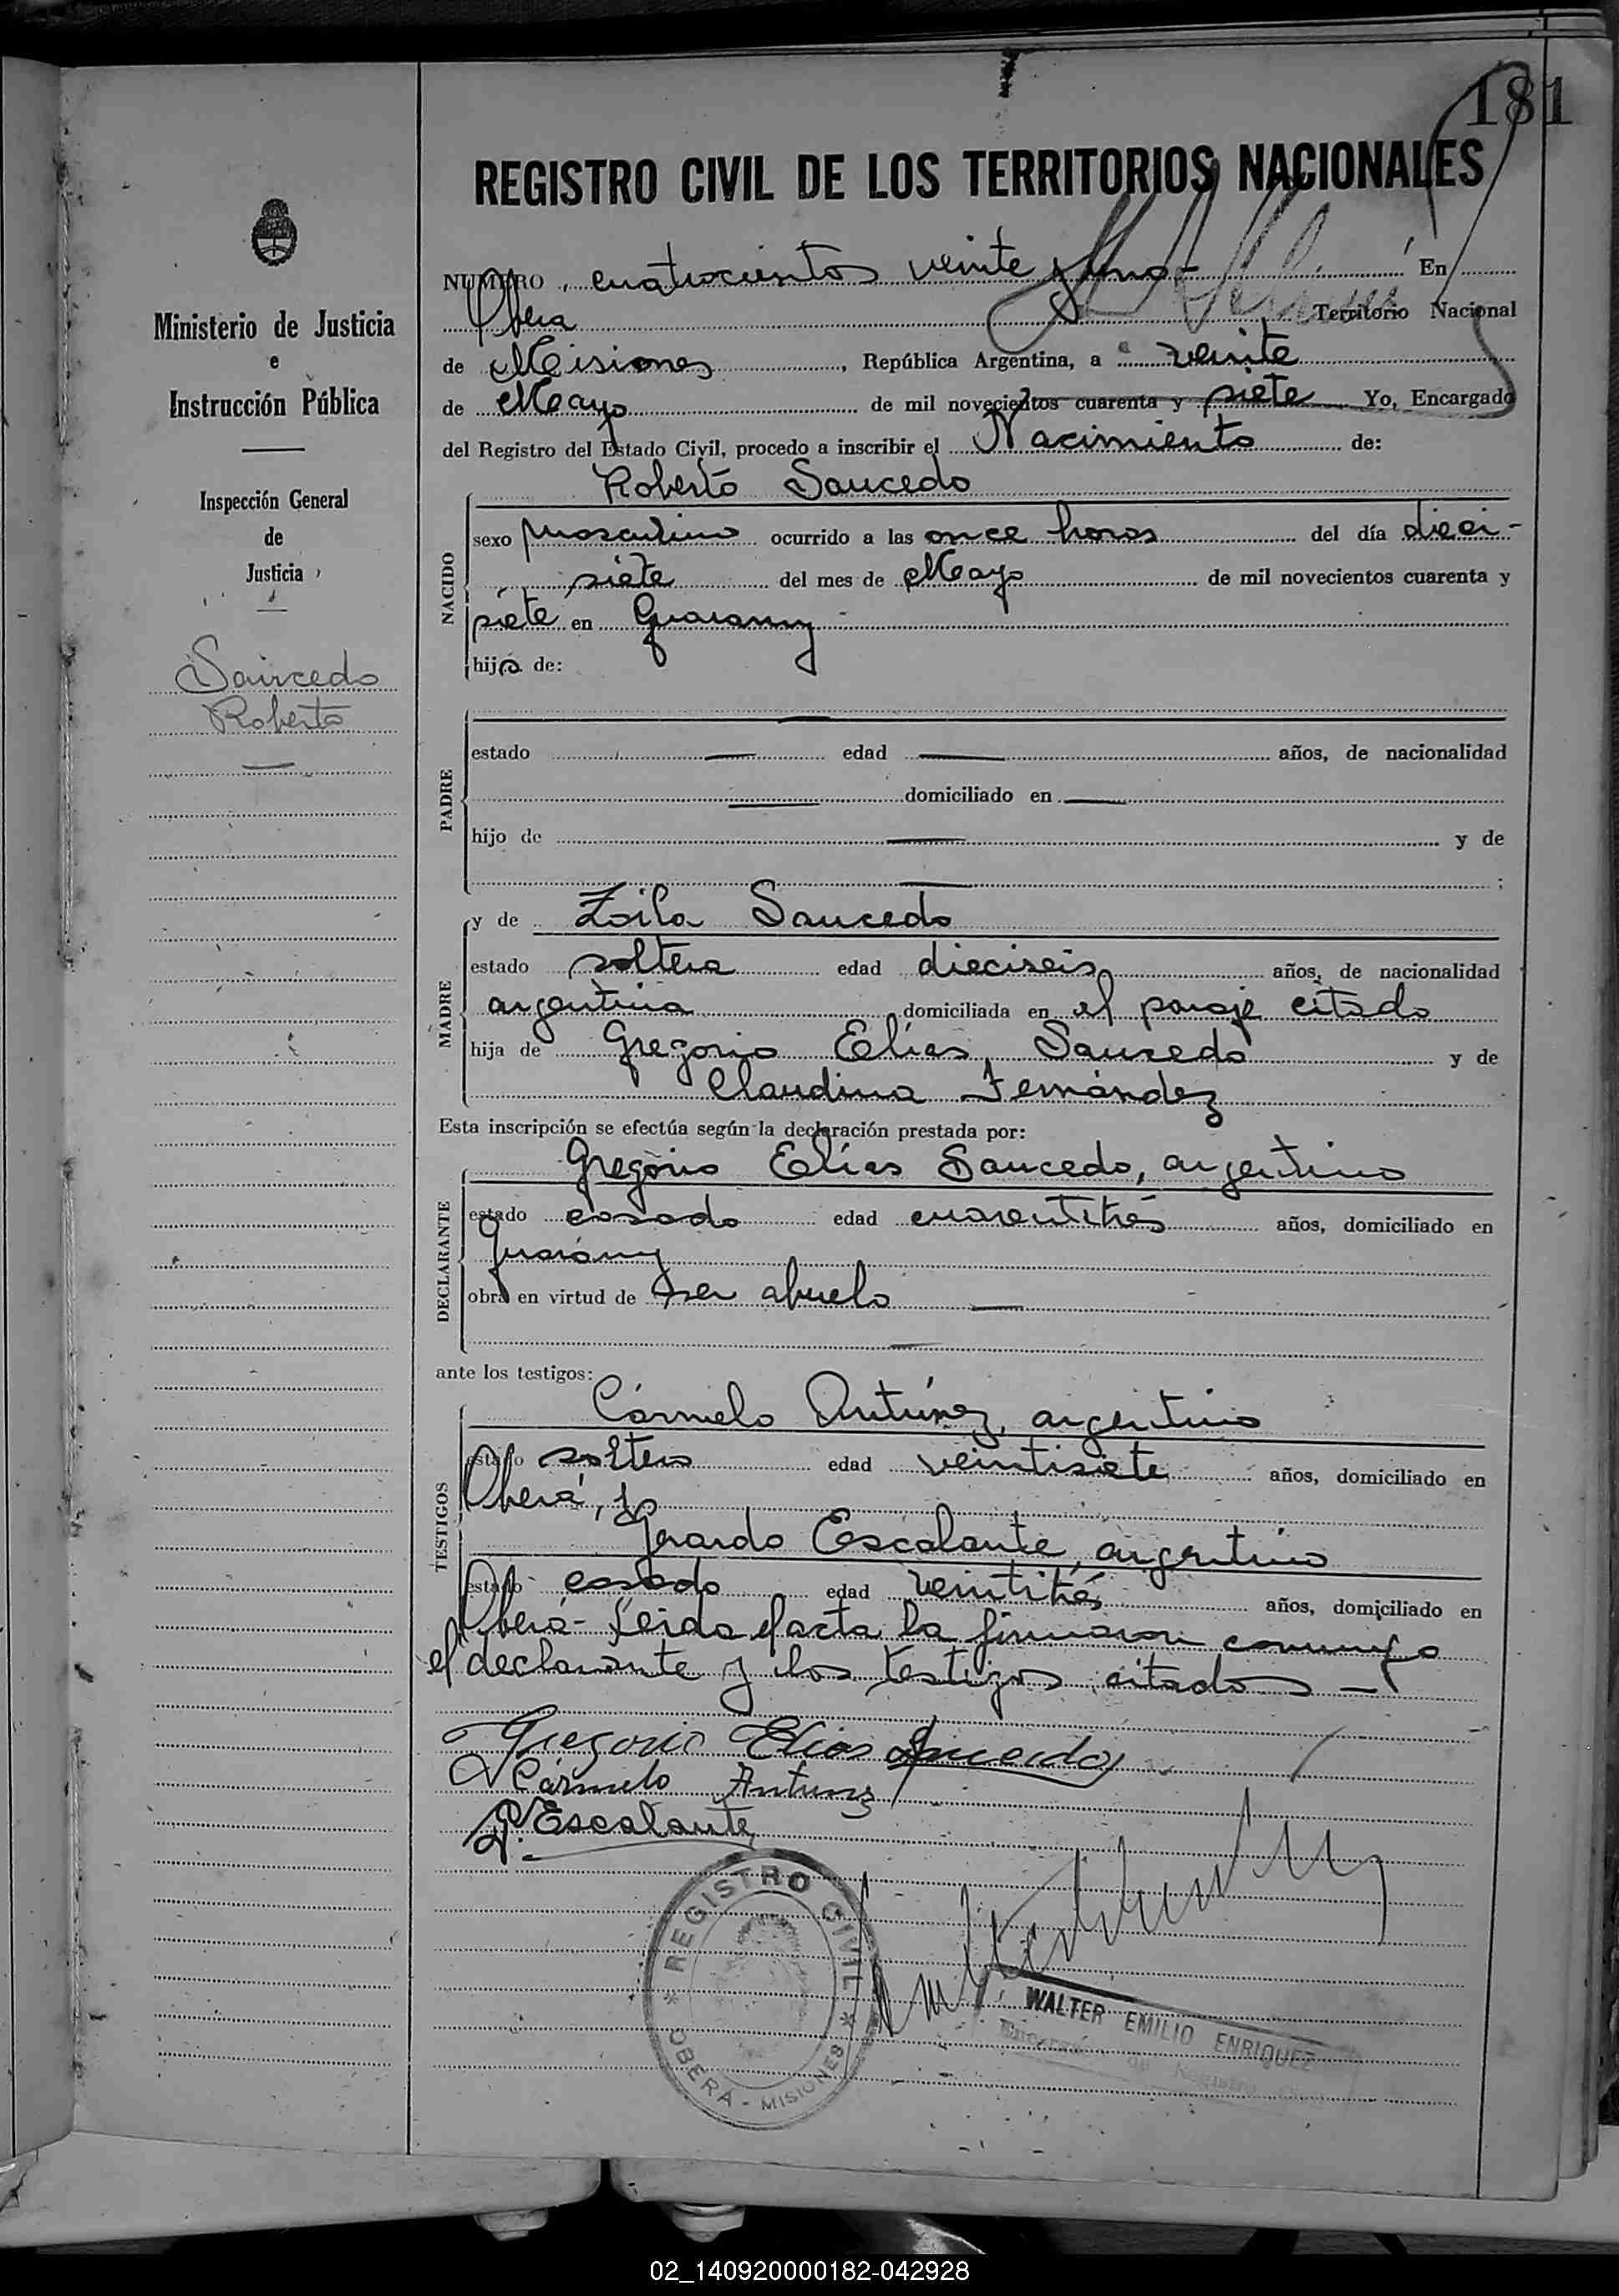 181
REGISTRO CIVIL DE LOS TERRITORIOS NACIONALES
NUMERO cuatrocientos veinte y uno - En
Oberá Territorio Nacional
de Misiones, República Argentina, a veinte
de Mayo de mil novecientos cuarenta y siete Yo, Encargado
del Registro del Estado Civil, procedo a inscribir el Nacimiento de:
Ministerio de Justicia
e
Instrucción Pública
Inspección General
de
Justicia
Saucedo
Roberto
NACIDO
Roberto Saucedo
sexo masculino ocurrido a las once horas del día dieci-
siete del mes de Mayo de mil novecientos cuarenta y
siete en Guarany
hijo de:
PADRE
estado — edad — años, de nacionalidad
— domiciliado en —
hijo de — y de
— ;
MADRE
y de Zoila Saucedo
estado soltera edad dieciseis años, de nacionalidad
argentina domiciliada en el paraje citado
hija de Gregorio Elías Saucedo y de
Claudina Fernández
Esta inscripción se efectúa según la declaración prestada por:
DECLARANTE
Gregorio Elías Saucedo, argentino
estado casado edad cuarentitrés años, domiciliado en
Guarany
obra en virtud de ser abuelo —
ante los testigos:
TESTIGOS
Cármelo Antúnez, argentino
estado soltero edad veintisiete años, domiciliado en
Oberá, y
Gerardo Escalante, argentino
estado casado edad veintitrés años, domiciliado en
Oberá - Leida el acta la firmaron conmigo
el declarante y los testigos citados —
Gregorio Elias Saucedo
Cármelo Antunez
G. Escalante
REGISTRO CIVIL
OBERÁ - MISIONES
WALTER EMILIO ENRIQUEZ
02_140920000182-042928